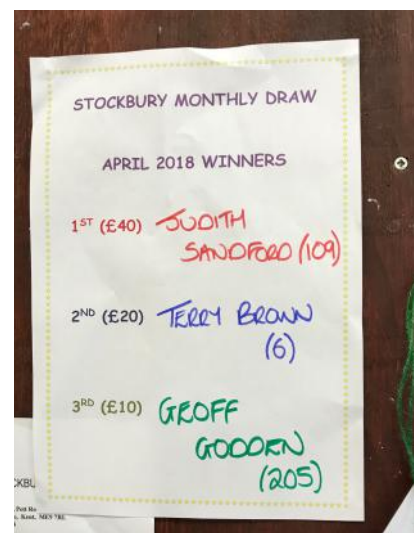 STOCKBURY MONTHLY DRAW
APRIL 2018 WINNERS
1ST (£40) JUDITH
SANDFORD (109)
2ND (£20) TERRY BROWN
(6)
3RD (£10) GEOFF
GODDEN
(205)
KBU
Kent, ME9 7RL